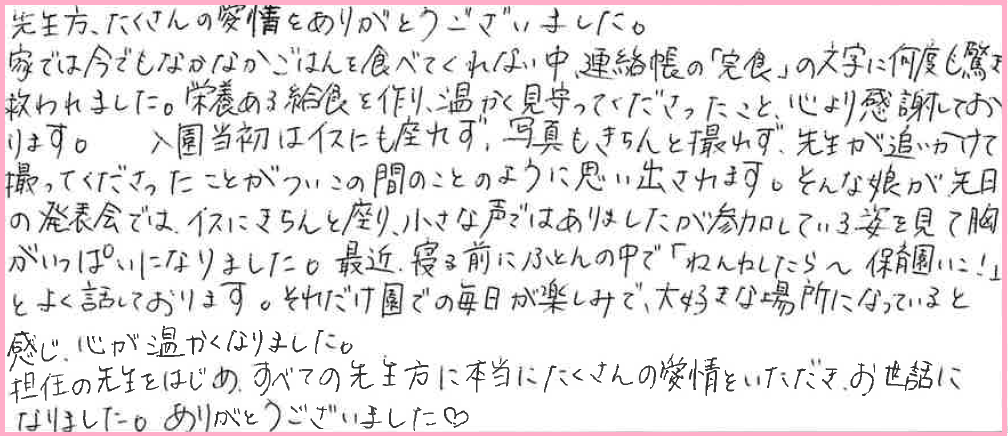 先生方、たくさんの愛情をありがとうございました。
家では今でもなかなかごはんを食べてくれない中、連絡帳の「完食」の文字に何度も驚き
救われました。栄養ある給食を作り、温かく見守ってくださったこと、心より感謝してお
ります。 入園当初はイスにも座れず、写真もきちんと撮れず、先生が追いかけて
撮ってくださったことがついこの間のことのように思い出されます。そんな娘が先日
の発表会では、イスにきちんと座り、小さな声ではありましたが参加している姿を見て胸
がいっぱいになりました。最近、寝る前にふとんの中で「ねんねしたら〜保育園いこ!」
とよく話しております。それだけ園での毎日が楽しみで、大好きな場所になっていると
感じ、心が温かくなりました。
担任の先生をはじめ、すべての先生方に本当にたくさんの愛情をいただき、お世話に
なりました。ありがとうございました♡